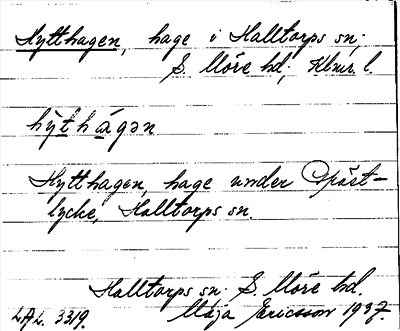 Hytthagen, hage i Halltorps sn,
S. Möre hd, Klmr. l.
hỳthágən
Hytthagen, hage under
lycke, Halltorps sn.
Halltorps sn. S. Möre hd.
LAL. 3319. Maja Ericsson 1937.